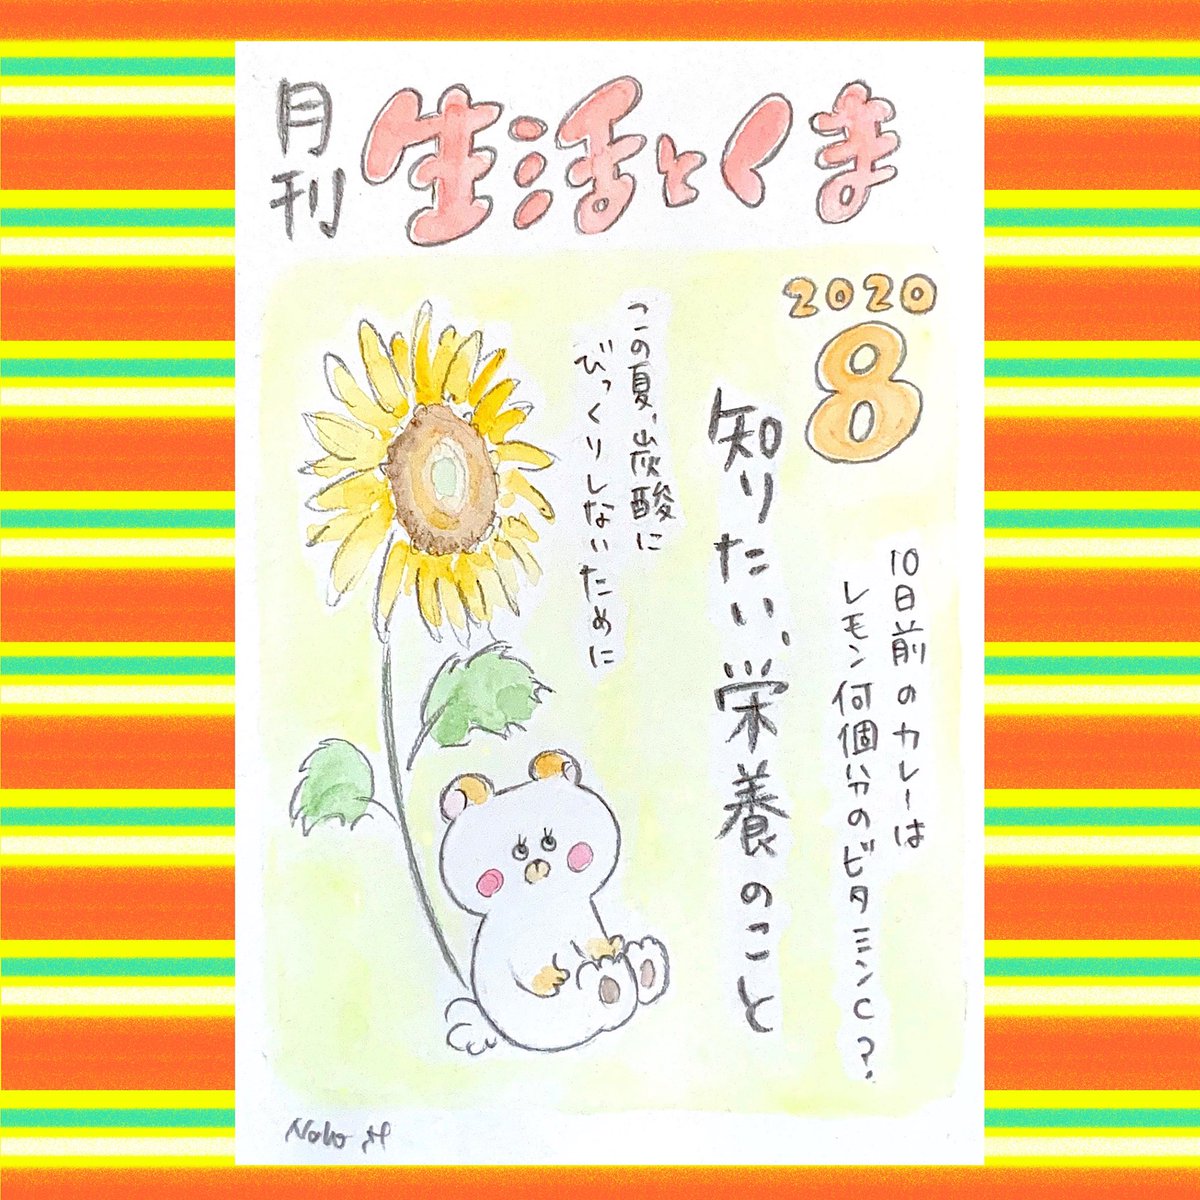 月刊
生活とくま
2020
8
10日前のカレーは
レモン何個分のビタミンC?
知りたい、栄養のこと
この夏、炭酸に
びっくりしないために